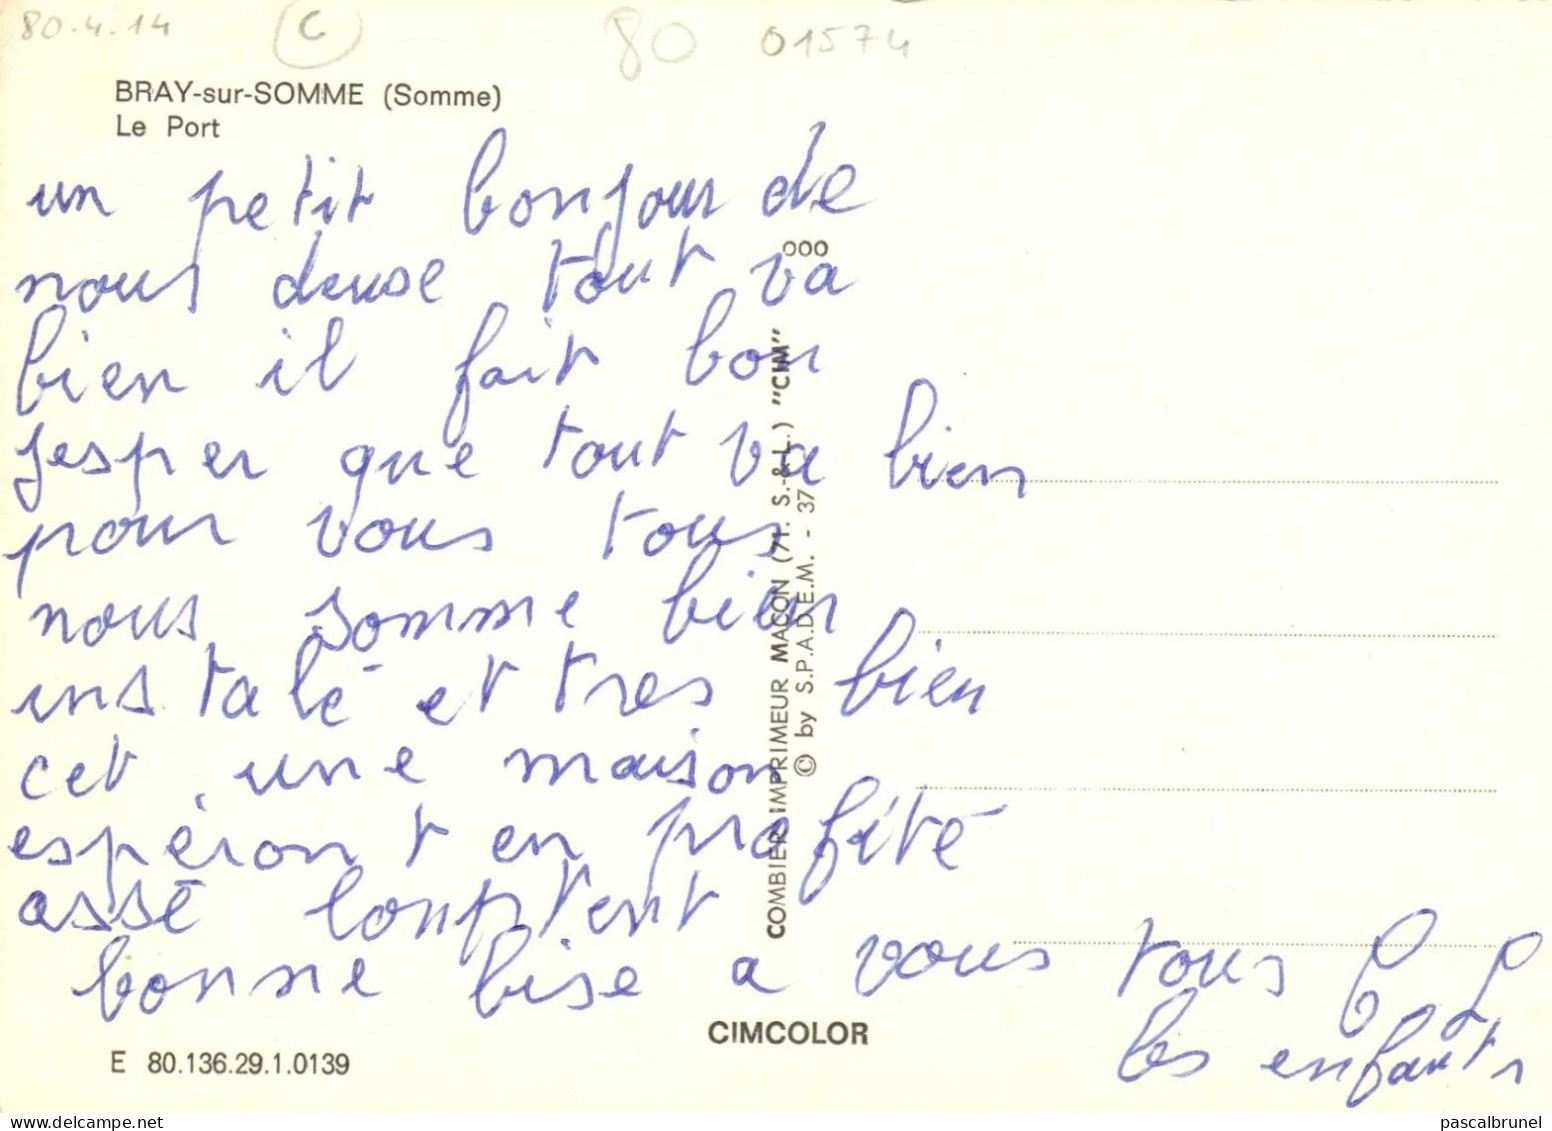 80-4.14 C 80 01574
BRAY-sur-SOMME (Somme)
Le Port
un petit bonjour de
nous deuse tout va
bien il fait bon
jesper que tout va bien
pour vous tous
nous somme bien
instalé et tres bien
cet une maison
espéront en profité
assé longtent
bonne bise a vous tous
les enfants
COMBIER IMPRIMEUR MACON (71. S.-&-L.) "CIM"
© by S.P.A.D.E.M. - 37
ooo
CIMCOLOR
E 80.136.29.1.0139
pascalbrunel